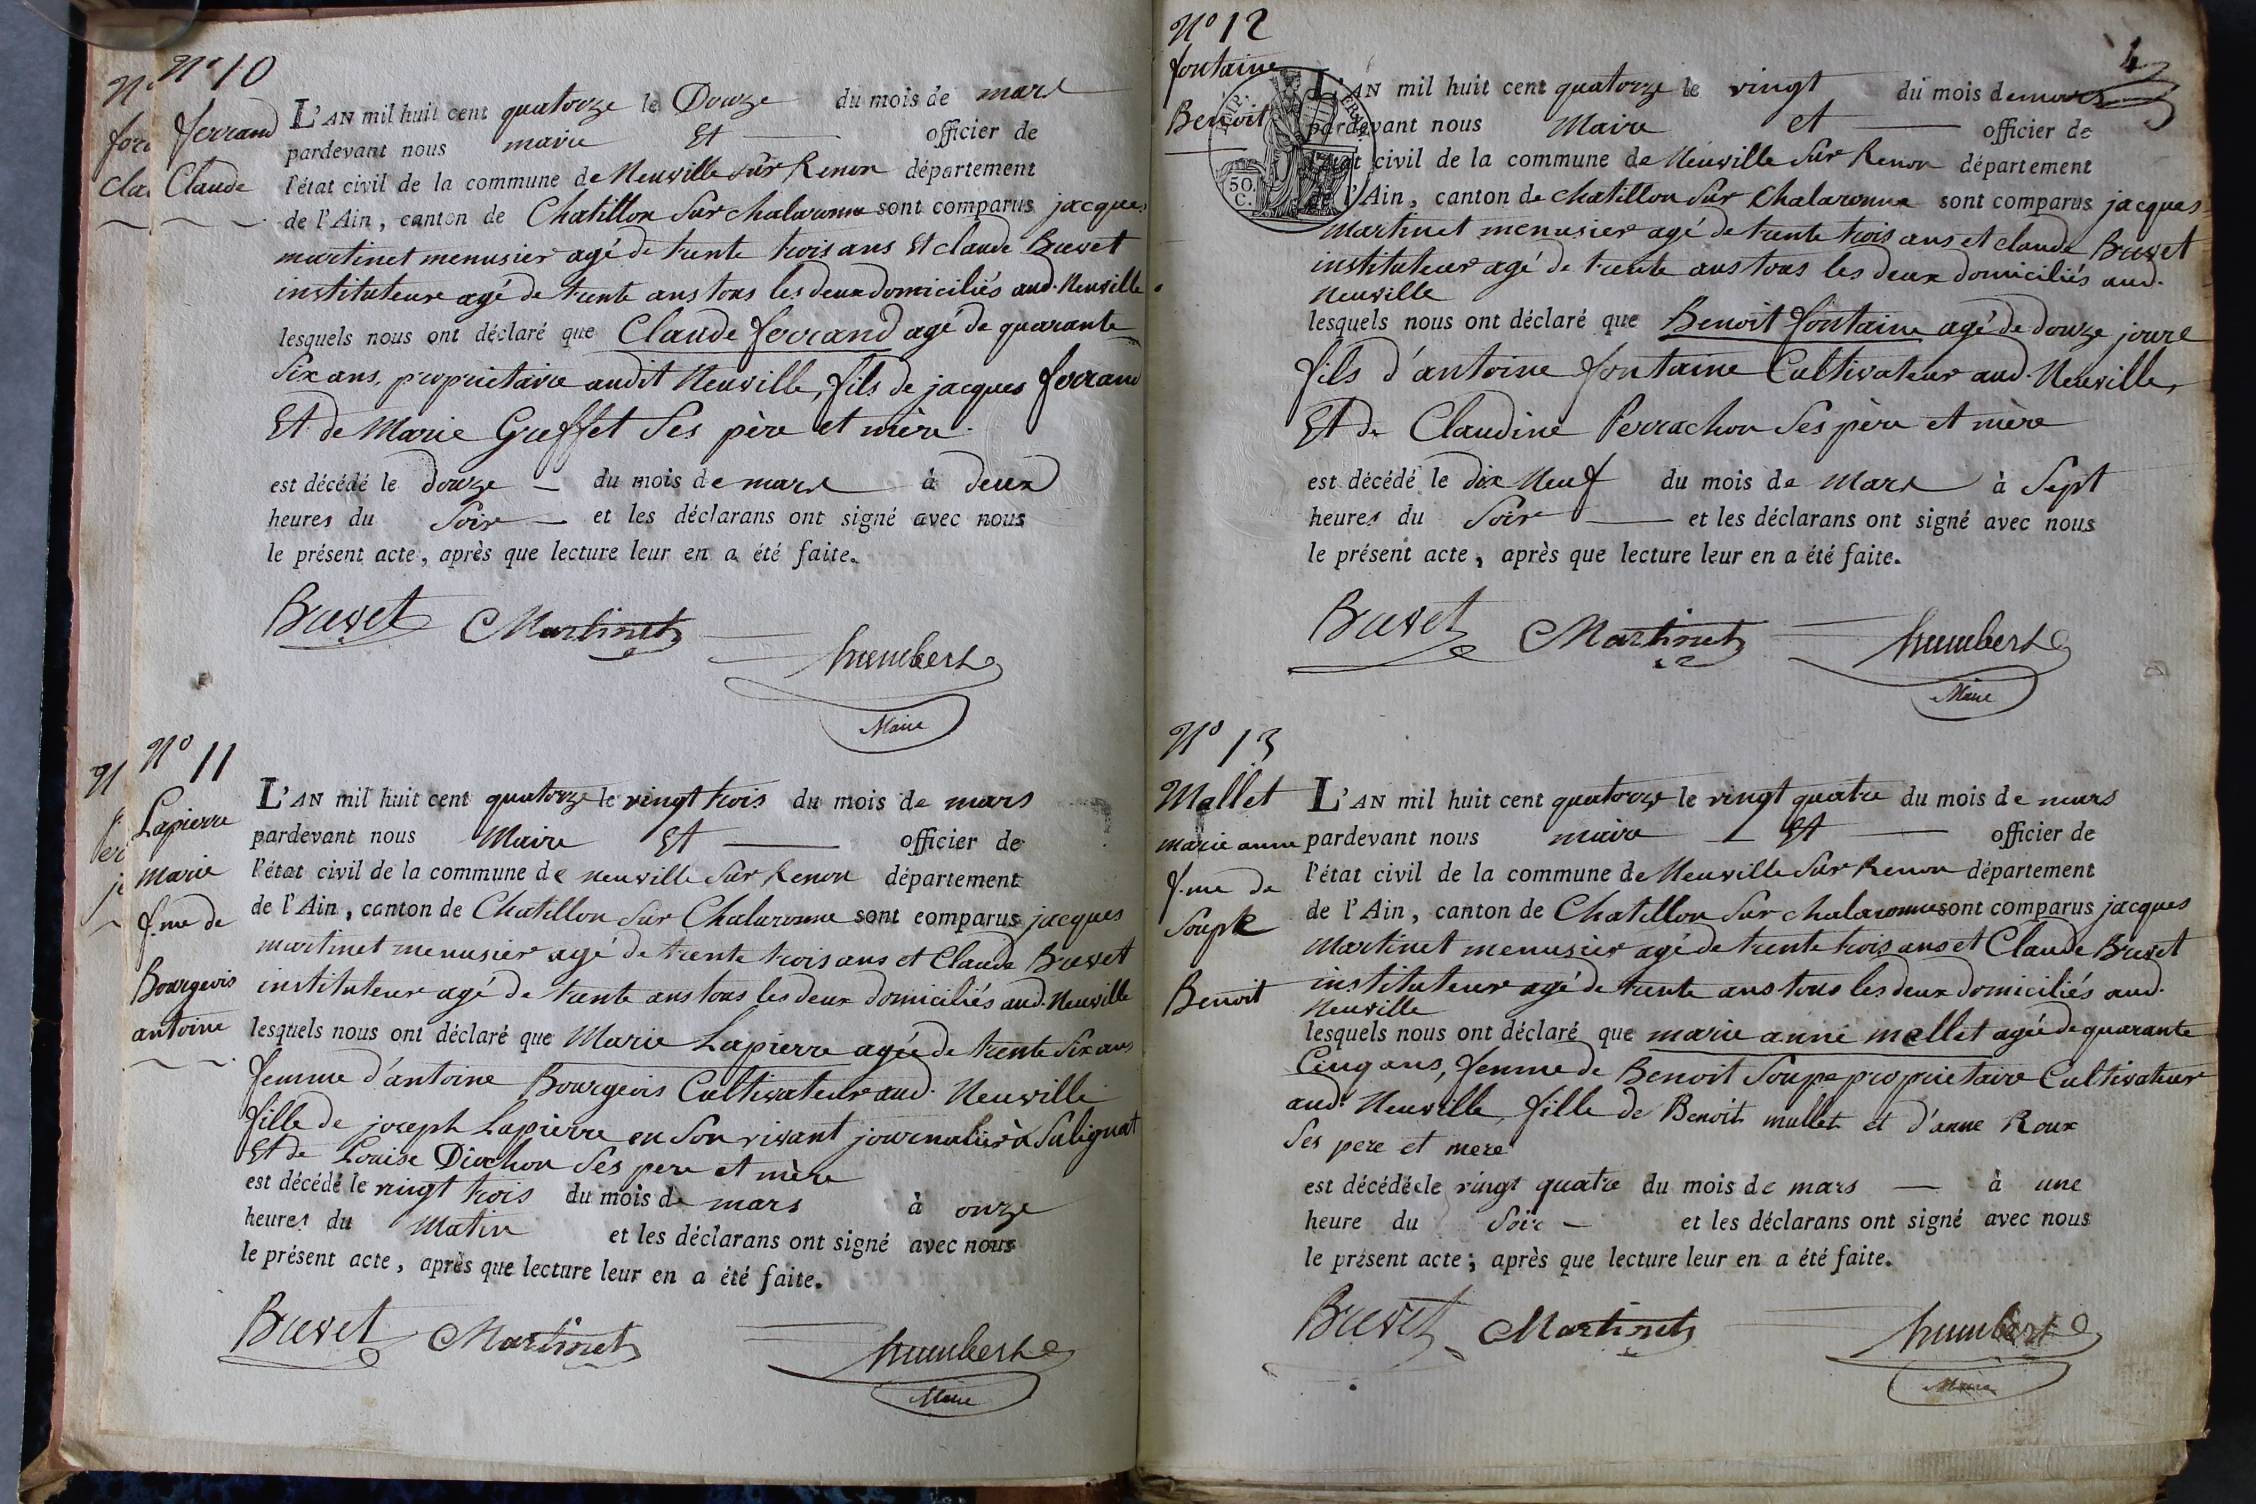 N° 10
ferrand
Claude
L'AN mil huit cent quatorze le Douze du mois de mars
pardevant nous maire Et officier de
l'état civil de la commune de Neuville sur Renon département
de l'Ain, canton de Chatillon sur chalaronne sont comparus jacques
martinet menusier agé de trente trois ans Et claude Buvet
instituteur agé de trente ans tous les deux domiciliés aud. Neuville
lesquels nous ont déclaré que Claude ferrand agé de quarante
Six ans, proprietaire audit Neuville, fils de jacques ferrand
Et de Marie Greffet Ses père et mère.
est décédé le douze du mois de mars à deux
heures du Soir et les déclarans ont signé avec nous
le présent acte, après que lecture leur en a été faite.
Buvet Martinet humbert
Maire
N° 11
Lapierre
marie
f.me de
Bourgeois
antoine
L'AN mil huit cent quatorze le vingt trois du mois de mars
pardevant nous Maire Et officier de
l'état civil de la commune de neuville sur Renon département
de l'Ain, canton de Chatillon sur Chalaronne sont comparus jacques
martinet menusier agé de trente trois ans et Claude Buvet
instituteur agé de trente ans tous les deux domiciliés aud. Neuville
lesquels nous ont déclaré que Marie Lapierre agée de trente Six ans
femme d'antoine Bourgeois Cultivateur aud. Neuville
fille de joseph Lapierre en Son vivant journalier à Sulignat
Et de Louise Diochon Ses pere et mère
est décédé le vingt trois du mois de mars à onze
heures du Matin et les déclarans ont signé avec nous
le présent acte, après que lecture leur en a été faite.
Buvet Martinet humbert
Maire
N° 12
fontaine
Benoit
4
50.
C.
L'AN mil huit cent quatorze le vingt du mois de mars
pardevant nous Maire et officier de
l'état civil de la commune de Neuville Sur Renon département
de l'Ain, canton de chatillon Sur Chalaronne sont comparus jacques
Martinet menusier agé de trente trois ans et claude Buvet
instituteur agé de trente ans tous les deux domiciliés aud.
Neuville
lesquels nous ont déclaré que Benoit fontaine agé de douze jours
fils d'antoine fontaine Cultivateur aud. Neuville,
Et de Claudine Perrachon Ses père et mère
est décédé le dix Neuf du mois de Mars à Sept
heures du Soir et les déclarans ont signé avec nous
le présent acte, après que lecture leur en a été faite.
Buvet Martinet humbert
Maire
N° 13
Mallet
marie anne
f.me de
Soupe
Benoit
L'AN mil huit cent quatorze le vingt quatre du mois de mars
pardevant nous maire Et officier de
l'état civil de la commune de Neuville Sur Renon département
de l'Ain, canton de Chatillon Sur chalaronne sont comparus jacques
Martinet menusier agé de trente trois ans et Claude Buvet
instituteur agé de trente ans tous les deux domiciliés aud.
Neuville
lesquels nous ont déclaré que marie anne mallet agée de quarante
Cinq ans, femme de Benoit Soupe proprietaire Cultivateur
aud. Neuville, fille de Benoit mallet et d'anne Roux
Ses pere et mere
est décédée le vingt quatre du mois de mars à une
heure du Soir et les déclarans ont signé avec nous
le présent acte; après que lecture leur en a été faite.
Buvet Martinet humbert
Maire